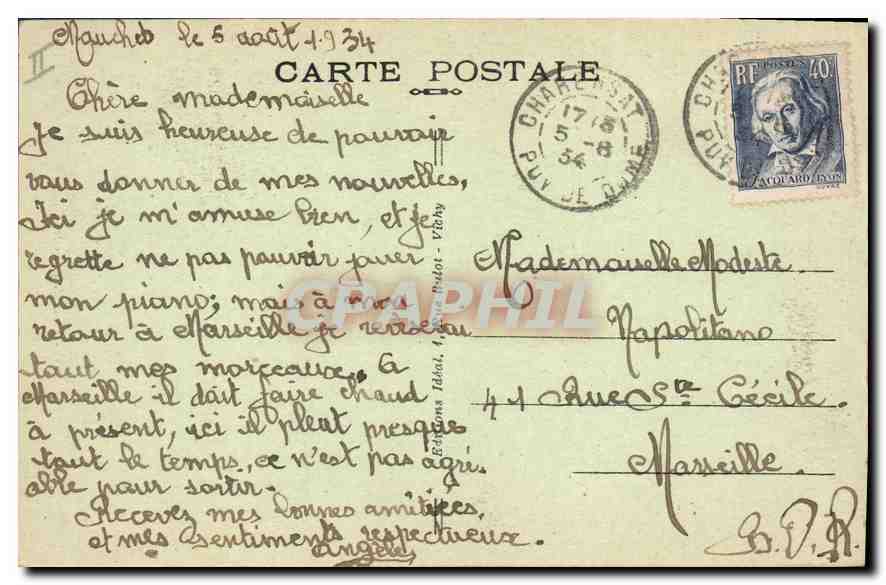 le 5 août 1934
II
CARTE POSTALE
Chère mademoiselle
Je suis heureuse de pouvoir
vous donner de mes nouvelles,
Ici je m'amuse bien, et je
regrette ne pas pouvoir jouer
mon piano; mais à mon
retour à Marseille je
tout mes morceaux. A
Marseille il doit faire chaud
à présent, ici il pleut presque
tout le temps, ce n'est pas agré-
able pour sortir.
Recevez mes bonnes amitiées,
et mes sentiments respectueux.
Angèle
Editions Idéal, 1, Rue Dulot - Vichy
CHARENSAT
17 15
5 -8
34
PUY DE DOME
CHA
PUY
POSTES
RF 40c
JACQUARD LYON
Mademoiselle Modeste
Napolitano
41 Rue Ste Cécile.
Marseille.
B. D. R.
CPARHIL